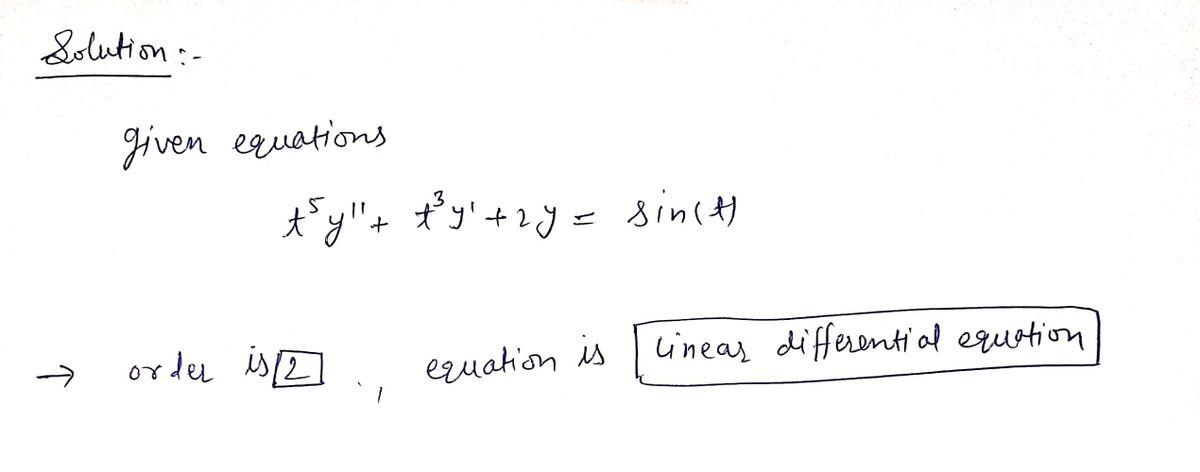 Solution :-
given equations
t⁵y'' + t³y' + 2y = sin(t)
→ order is 2 ., equation is linear differential equation